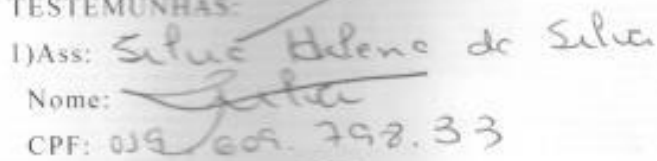 TESTEMUNHAS:
1)Ass: Selva Helena da Silva
Nome:
CPF: 019.609.798.33